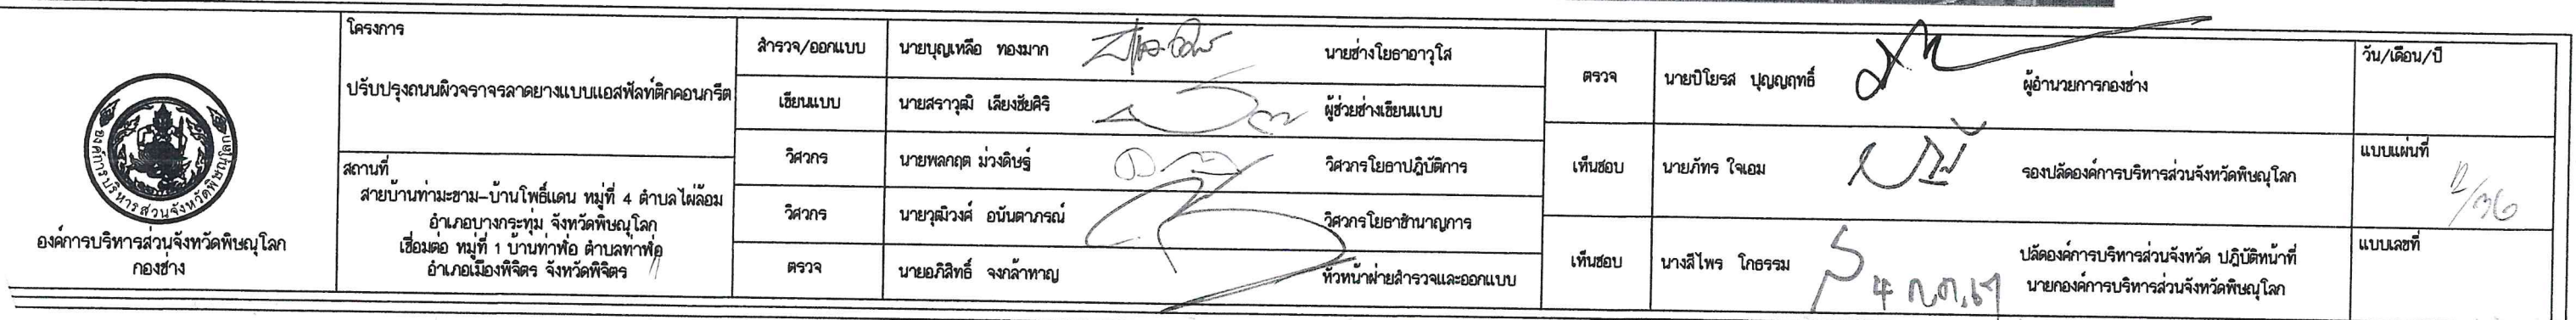 องค์การบริหารส่วนจังหวัดพิษณุโลก
องค์การบริหารส่วนจังหวัดพิษณุโลก
กองช่าง
โครงการ
ปรับปรุงถนนผิวจราจรลาดยางแบบแอสฟัลท์ติกคอนกรีต
สถานที่
สายบ้านท่ามะขาม-บ้านโพธิ์แดน หมู่ที่ 4 ตำบลไผ่ล้อม
อำเภอบางกระทุ่ม จังหวัดพิษณุโลก
เชื่อมต่อ หมู่ที่ 1 บ้านท่าฬ่อ ตำบลท่าฬ่อ
อำเภอเมืองพิจิตร จังหวัดพิจิตร
สำรวจ/ออกแบบ นายบุญเหลือ ทองมาก นายช่างโยธาอาวุโส
เขียนแบบ นายสราวุฒิ เลียงชัยศิริ ผู้ช่วยช่างเขียนแบบ
วิศวกร นายพลกฤต ม่วงดิษฐ์ วิศวกรโยธาปฏิบัติการ
วิศวกร นายวุฒิวงศ์ อนันตาภรณ์ วิศวกรโยธาชำนาญการ
ตรวจ นายอภิสิทธิ์ จงกล้าหาญ หัวหน้าฝ่ายสำรวจและออกแบบ
ตรวจ นายปิโยรส ปุญญฤทธิ์ ผู้อำนวยการกองช่าง
เห็นชอบ นายภัทร ใจเอม รองปลัดองค์การบริหารส่วนจังหวัดพิษณุโลก
เห็นชอบ นางสีไพร โกธรรม ปลัดองค์การบริหารส่วนจังหวัด ปฏิบัติหน้าที่
นายกองค์การบริหารส่วนจังหวัดพิษณุโลก
วัน/เดือน/ปี
แบบแผ่นที่
แบบเลขที่